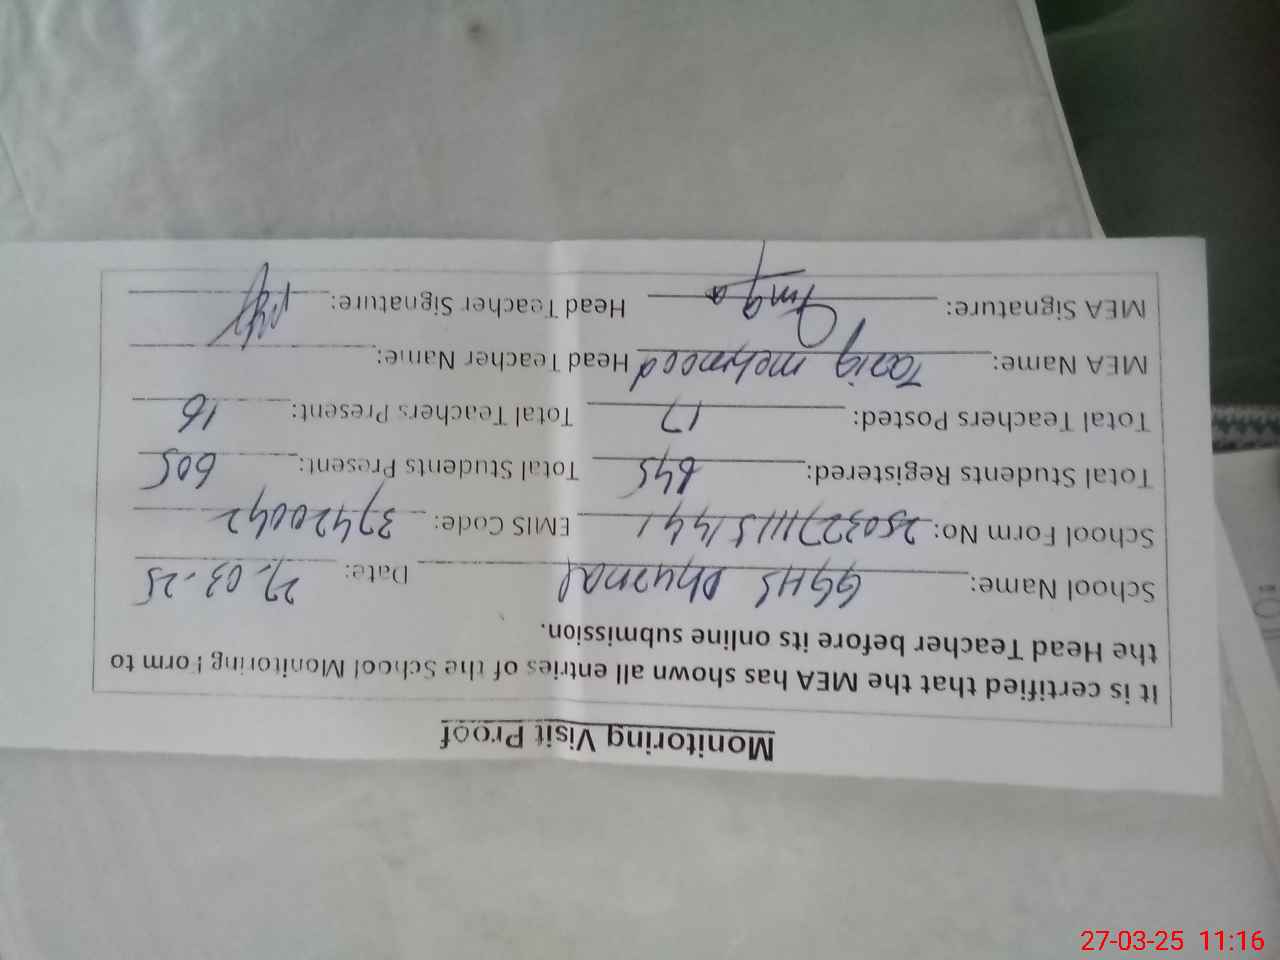 Monitoring Visit Proof
It is certified that the MEA has shown all entries of the School Monitoring Form to
the Head Teacher before its online submission.
School Name: GGHS Dhurnal Date: 27-03-25
School Form No: 25032711151441 EMIS Code: 37420042
Total Students Registered: 645 Total Students Present: 605
Total Teachers Posted: 17 Total Teachers Present: 16
MEA Name: Tariq mehmood Head Teacher Name:
MEA Signature: Head Teacher Signature:
27-03-25 11:16